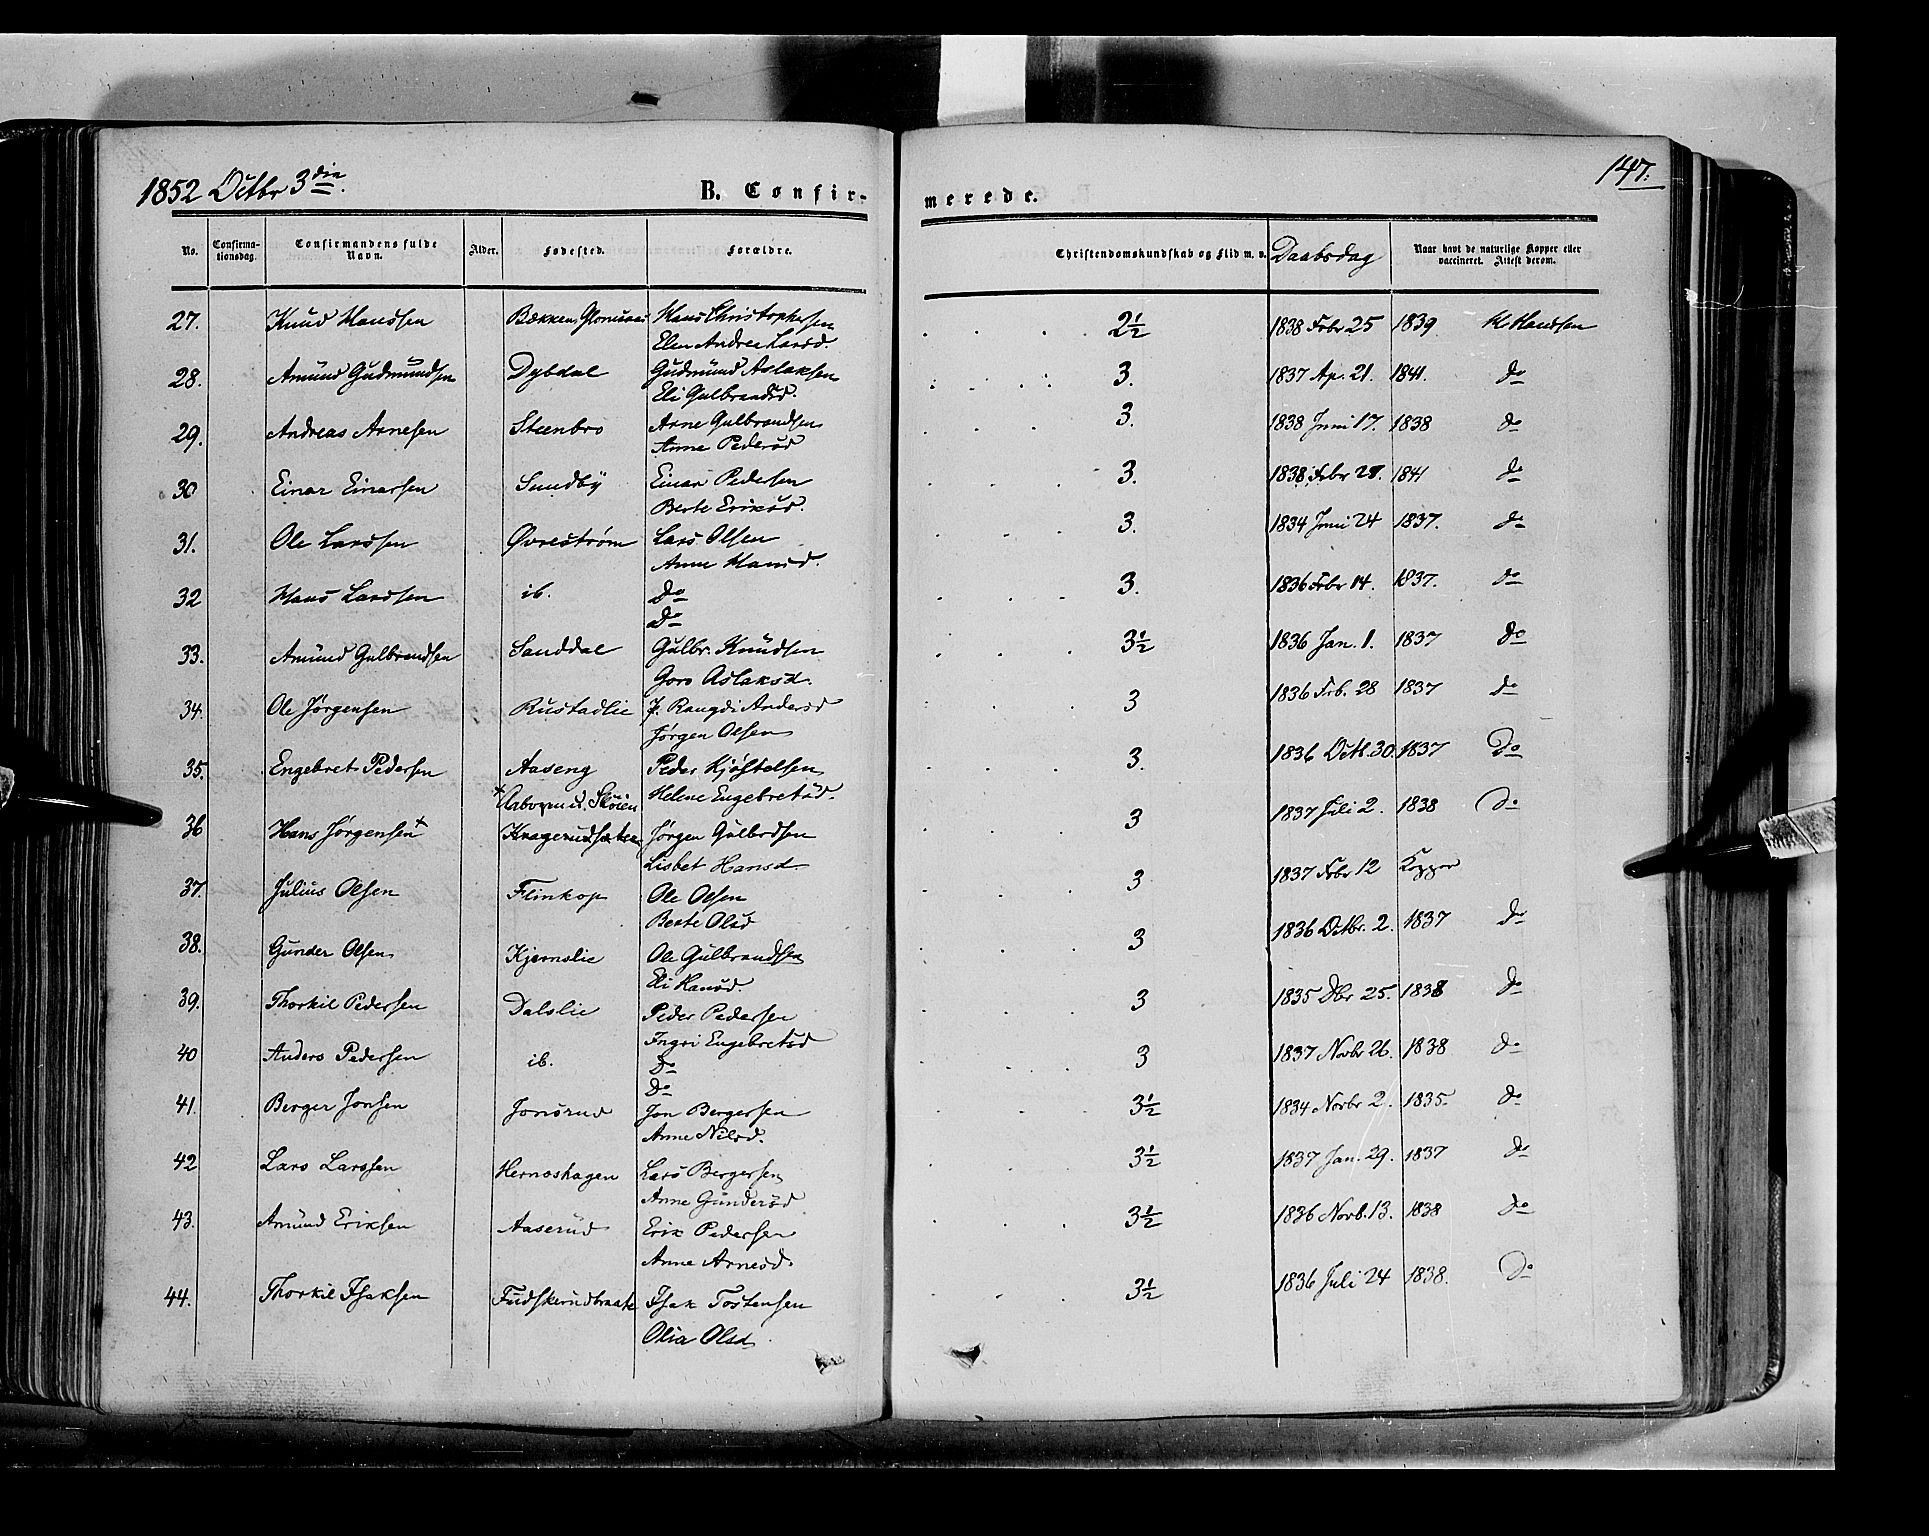 1852 Octbr 3die
B. Confir-
merede.
147.
No.
Confirma-
tionsdag.
Confirmandens fulde
Navn.
Alder.
Fødested.
Forældre.
Christendomskundskab og Flid m. v.
Daabsdag
Naar havt de naturlige Kopper eller
vaccineret. Attest derom.
27. Knud Hanssen Bækken, Hans Christophersen 2½ 1838 Febr 25 1839 K Handsen
Elen Andrea Larsd.
28. Amund Gudmundsen Dybdal Gudmund Aslaksen 3. 1837 Ap. 21. 1841. do
Eli Gulbrandsd.
29. Andreas Arnesen Steenbro Arne Gulbrandsen 3. 1838 Juni 17. 1838 do
Anne Pedersd
30 Einar Einarsen Sundby Einar Pedersen 3. 1838 Febr 28. 1841 do
Berte Eriksd.
31. Ole Larssen Øvreström Lars Olsen 3. 1834 Juni 24 1837. do
Anne Hansd.
32 Hans Larssen ib. Do 3. 1836 Febr 14. 1837. do
Do
33. Amund Gulbrandsen Sanddal Gulbr. Knudsen 3½ 1836 Jan. 1. 1837 do
Goro Aslaksd.
34. Ole Jørgensen Rustadlie P. Rangdi Andersd 3 1836 Feb. 28 1837 do
Jørgen Olsen
35. Engebret Pedersen Aaseng Peder Kjøstelsen 3. 1836 Octb. 30. 1837 Do
Helene Engebretsd.
x Arbogen u. Skøien
36 Hans Jørgensen x Kragerudsæteren Jørgen Gulbrdsen 3 1837 Juli 2. 1838 Do
Lisbet Hansd.
37. Julius Olsen Flinkop Ole Olsen 3 1837 Febr 12 Kopper
Berte Olsd
38. Gunder Olsen Kjernslie Ole Gulbrandsen 3 1836 Octbr. 2. 1837 do
Eli Hansd.
39. Thorkil Pedersen Dalslie Peder Pedersen 3 1835 Dbr 25. 1838 do
Ingri Engebretsd
40 Anders Pedersen ib. Do 3 1837 Novbr 26. 1838 do
Do
41. Berger Jonsen Jonsrud Jon Bergersen 3½ 1834 Novbr 2. 1835. do
Anne Nilsd.
42 Lars Larssen Herneshagen Lars Bergersen 3½ 1837 Jan. 29. 1837 do
Anne Gundersd
43. Amund Eriksen Aaserud Erik Pedersen 3½ 1836 Novb. 13. 1838 do
Anne Arnesd.
44. Thorkil Isaksen Fudskerudbraate Isak Tostensen 3½ 1836 Juli 24 1838. Do
Olia Olsd.